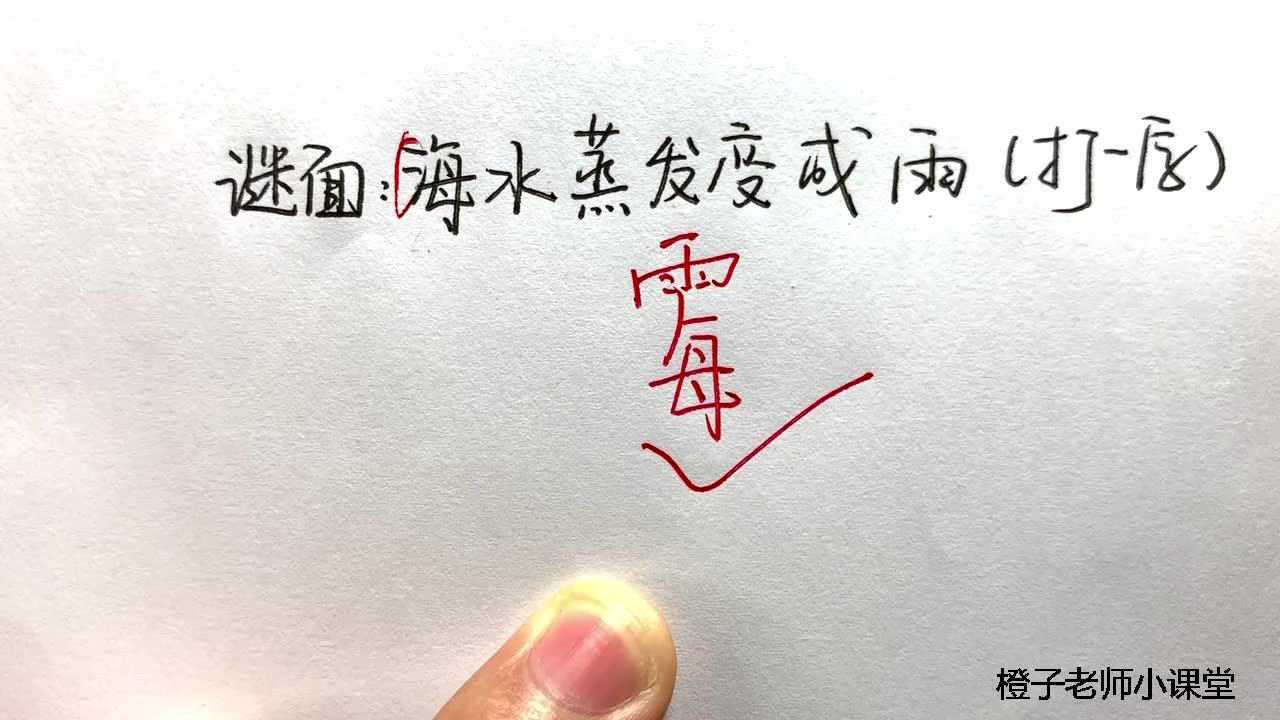 谜面:海水蒸发变成雨(打一字)
霉
橙子老师小课堂